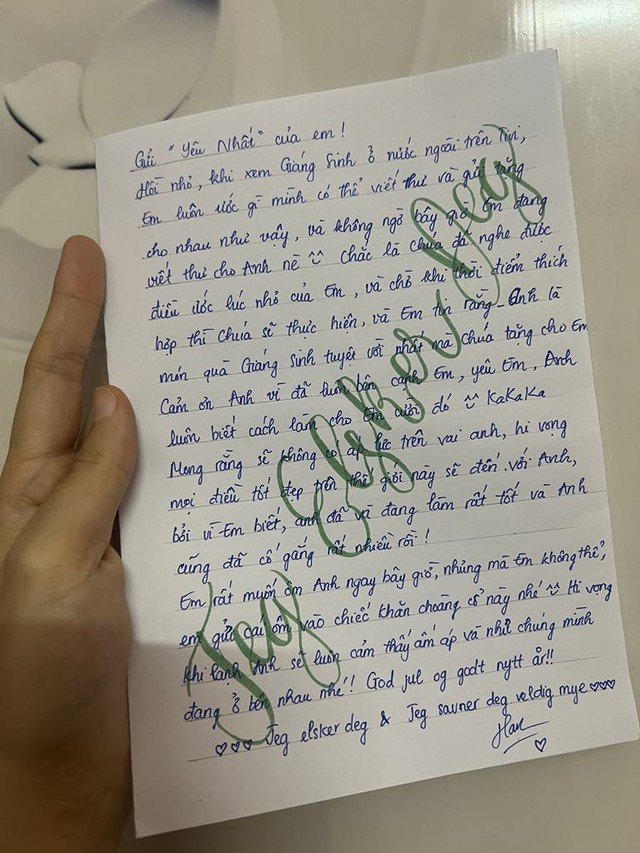 Gửi "Yêu Nhất" của em!
Hồi nhỏ, khi xem Giáng Sinh ở nước ngoài trên Tivi,
Em luôn ước gì mình có thể viết thư và gửi tặng
cho nhau như vậy, và không ngờ bây giờ Em đang
viết thư cho Anh nè ^^ Chắc là Chúa đã nghe được
điều ước lúc nhỏ của Em, và chờ khi thời điểm thích
hợp thì Chúa sẽ thực hiện, và Em tin rằng Anh là
món quà Giáng Sinh tuyệt vời nhất mà Chúa tặng cho Em
Cảm ơn Anh vì đã luôn bên cạnh Em, yêu Em, Anh
luôn biết cách làm cho Em cười đó ^^ KaKaKa
Mong rằng sẽ không có áp lực trên vai anh, hi vọng
mọi điều tốt đẹp trên thế giới này sẽ đến với Anh,
bởi vì Em biết, anh đã và đang làm rất tốt và Anh
cũng đã cố gắng rất nhiều rồi!
Em rất muốn ôm Anh ngay bây giờ, nhưng mà Em không thể,
em gửi cái ôm vào chiếc khăn choàng cổ này nhé ^^ Hi vọng
khi lạnh Anh sẽ luôn cảm thấy ấm áp và như chúng mình
đang ở bên nhau nhé! God jul og godt nytt år!!
♡♡♡ Jeg elsker deg & Jeg savner deg veldig mye ♡♡♡
Han
♡
Jeg Elsker Deg